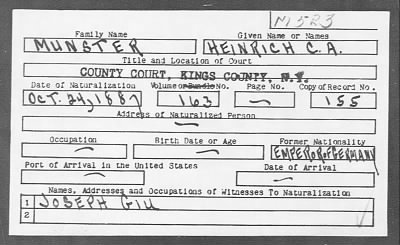 M523
Family Name Given Name or Names
MUNSTER HEINRICH C.A.
Title and Location of Court
COUNTY COURT, KINGS COUNTY, N.Y.
Date of Naturalization Volume or Bundle No. Page No. Copy of Record No.
OCT. 24, 1887 163 — 155
Address of Naturalized Person
—
Occupation Birth Date or Age Former Nationality
— — EMPEROR OF GERMANY
Port of Arrival in the United States Date of Arrival
— —
Names, Addresses and Occupations of Witnesses To Naturalization
1 JOSEPH GILL
2